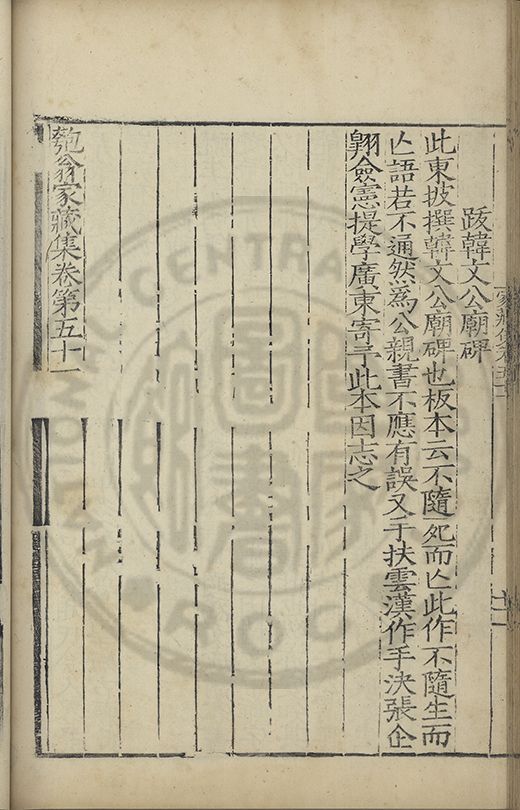 跋韓文公廟碑
此東坡撰韓文公廟碑也板本云不隨死而亾此作不隨生而
亾語若不通然爲公親書不應有誤又手扶雲漢作手決張企
翺僉憲提學廣東寄予此本因志之
匏翁家藏集卷第五十一